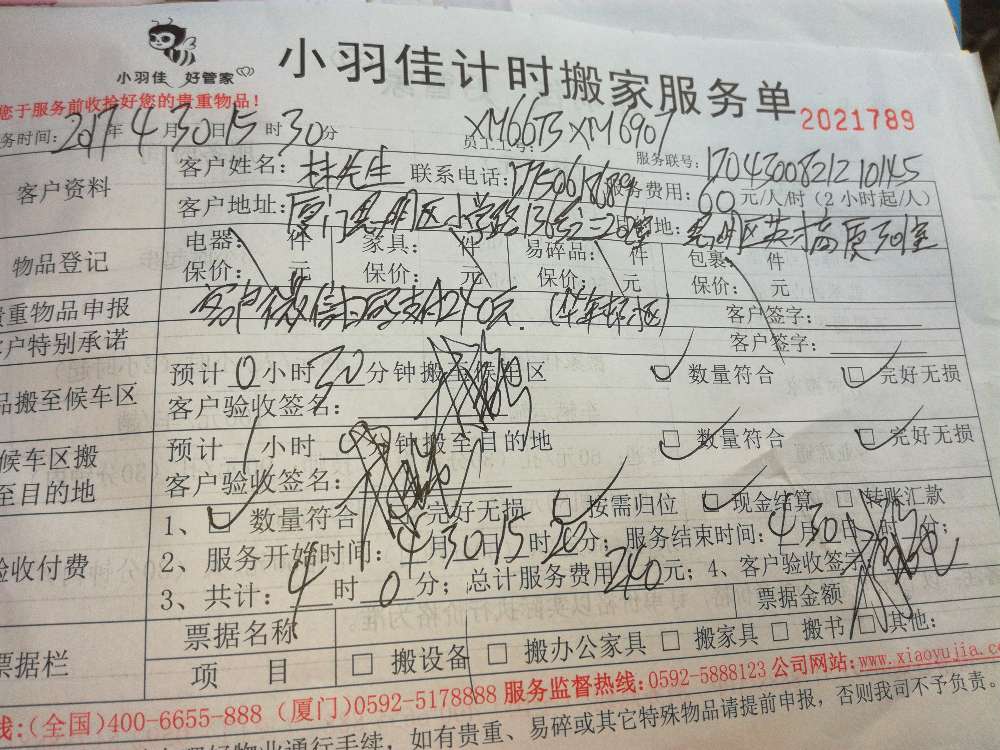 小羽佳 好管家
小羽佳计时搬家服务单
2021789
您于服务前收拾好您的贵重物品!
务时间: 2017年4月30日15时30分 员工工号: XM6673 XM6907 服务联号: 1704300821210145
客户资料
客户姓名: 林先生 联系电话: 服务费用: 60元/人/时 (2小时起/人)
客户地址: 厦门思明区
物品登记
电器: 件 家具: 件 易碎品: 件 包裹: 件
保价: 元 保价: 元 保价: 元 保价: 元
贵重物品申报
客户微信 支付240元. 客户签字:
客户特别承诺
客户签字:
品搬至候车区
预计0小时30分钟搬至候车区 □ 数量符合 □ 完好无损
客户验收签名:
候车区搬
至目的地
预计1小时0分钟搬至目的地 □ 数量符合 □ 完好无损
客户验收签名:
验收付费
1、□ 数量符合 □ 完好无损 □ 按需归位 □ 现金结算 □ 转账汇款
2、服务开始时间: 4月30日15时20分; 服务结束时间: 4月30日 时 分;
3、共计: 4时0分; 总计服务费用240元; 4、客户验收签字
票据栏
票据名称 票据金额
项 目 □ 搬设备 □ 搬办公家具 □ 搬家具 □ 搬书 □ 其他:
线:(全国)400-6655-888 (厦门)0592-5178888 服务监督热线:0592-5888123 公司网站:www.xiaoyujia.co
物业通行手续, 如有贵重、易碎或其它特殊物品请提前申报, 否则我司不予负责。